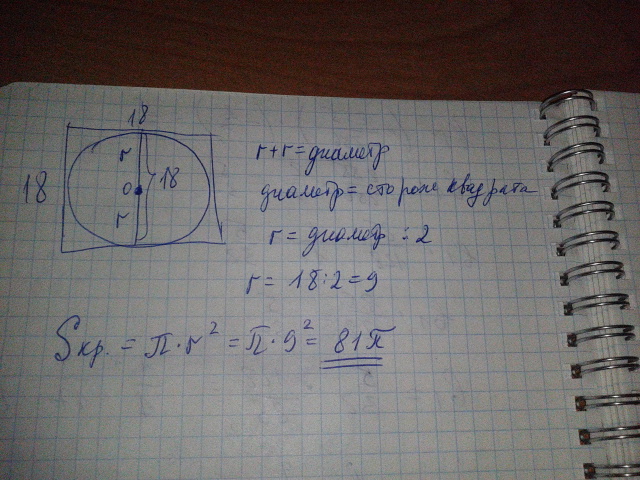 18
18
r
O
18
r
r+r=диаметр
диаметр=стороне квадрата
r = диаметр : 2
r = 18:2=9
Sкр. = π·r² = π·9² = 81π